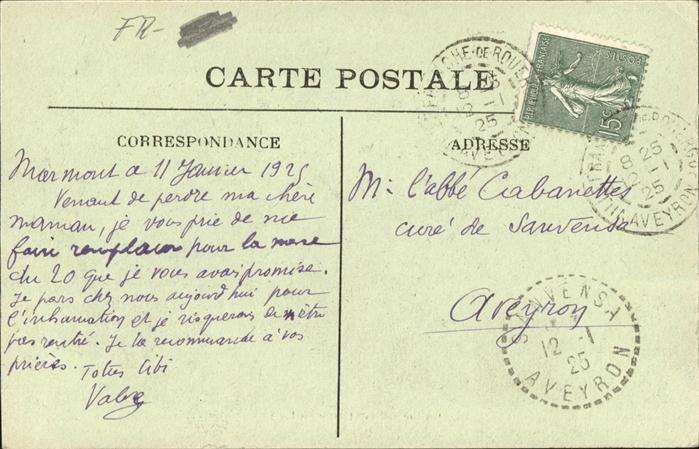 FR-
CARTE POSTALE
CORRESPONDANCE
Marmont a 11 Janvier 1925
Venant de perdre ma chère
maman, je vous prie de me
faire remplacer pour la messe
du 20 que je vous avais promise.
Je pars chez nous aujourd'hui pour
l'inhumation et je risquerais de n'être
pas rentré. Je la recommande à vos
prières.
Totus tibi
ADRESSE
M. l'abbé Cabanettes
curé de Sauvensa
Aveyron
15c
-DE-ROUE
25
AVEYRON
8
25
25
AVEYRON
SAUVENSA
12 -1
25
AVEYRON